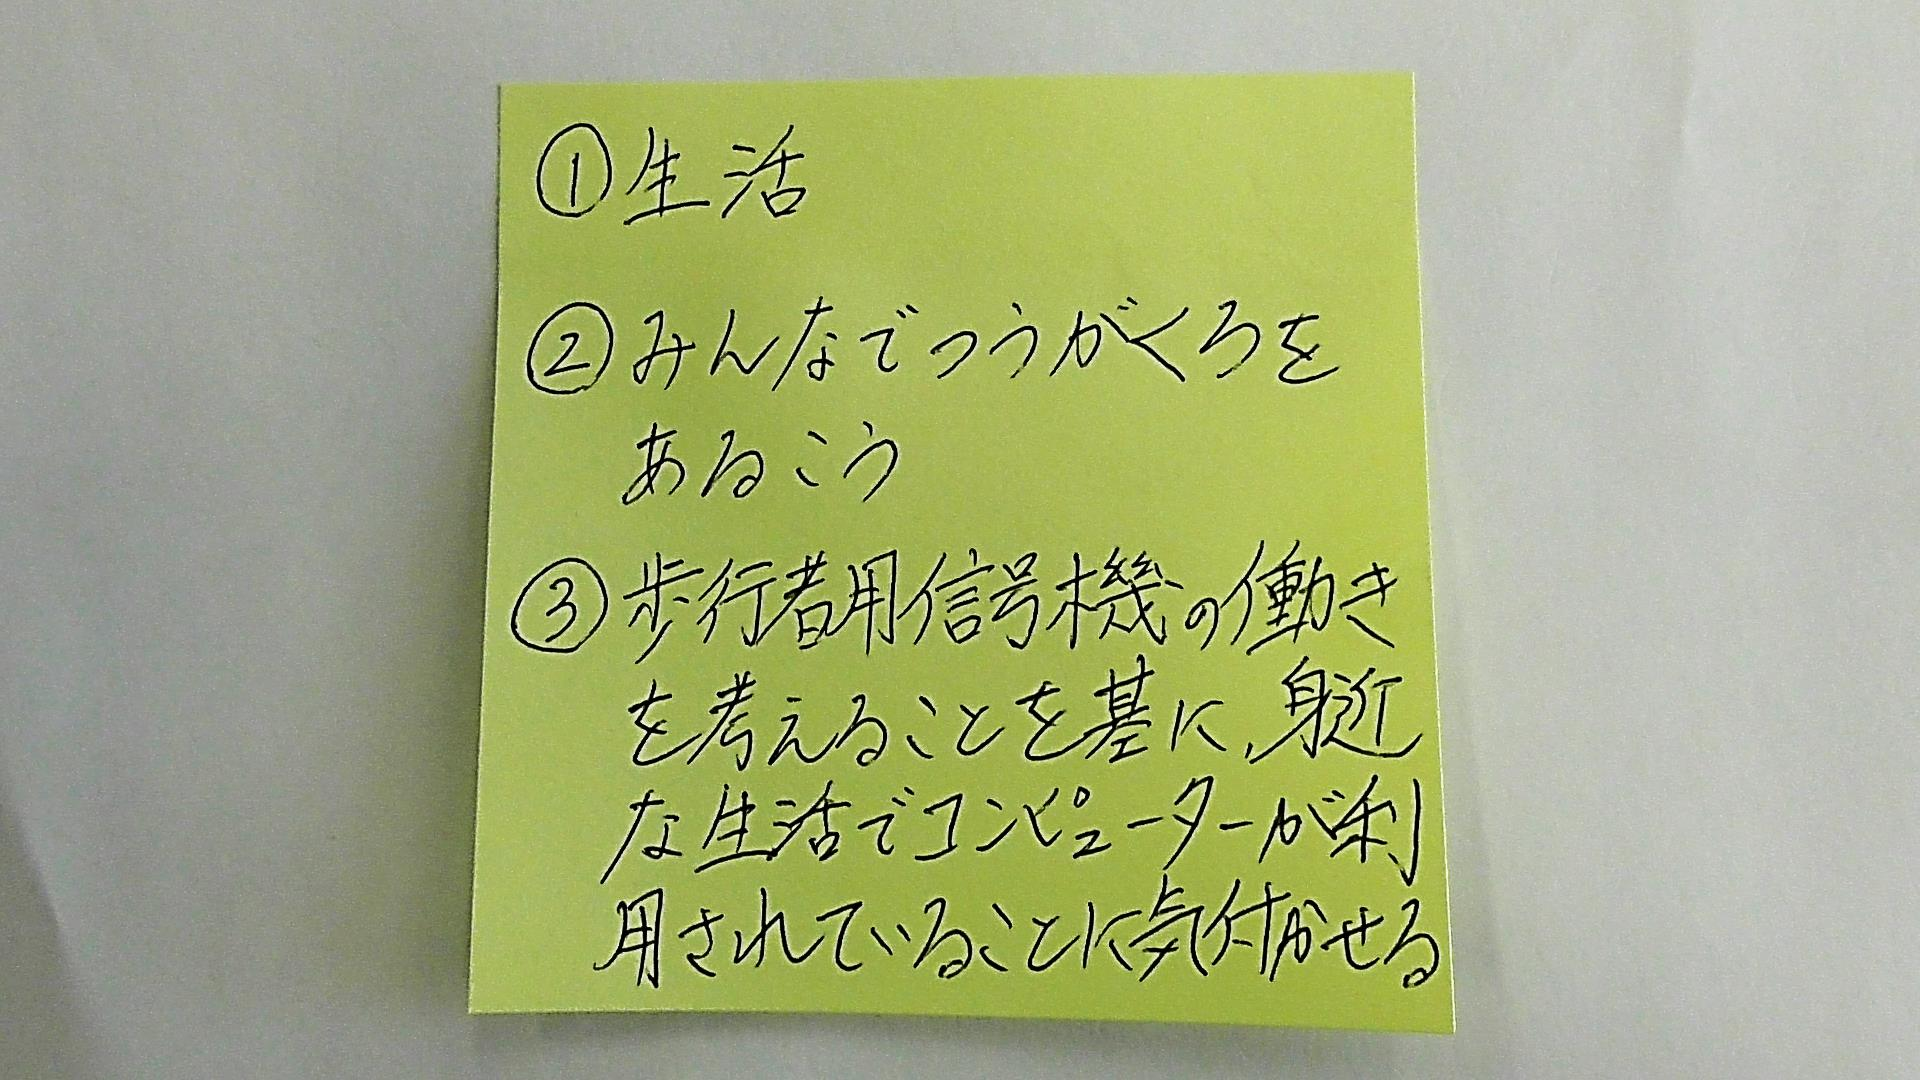 ①生活
②みんなでつうがくろを
あるこう
③歩行者用信号機の働き
を考えることを基に、身近
な生活でコンピューターが利
用されていることに気付かせる